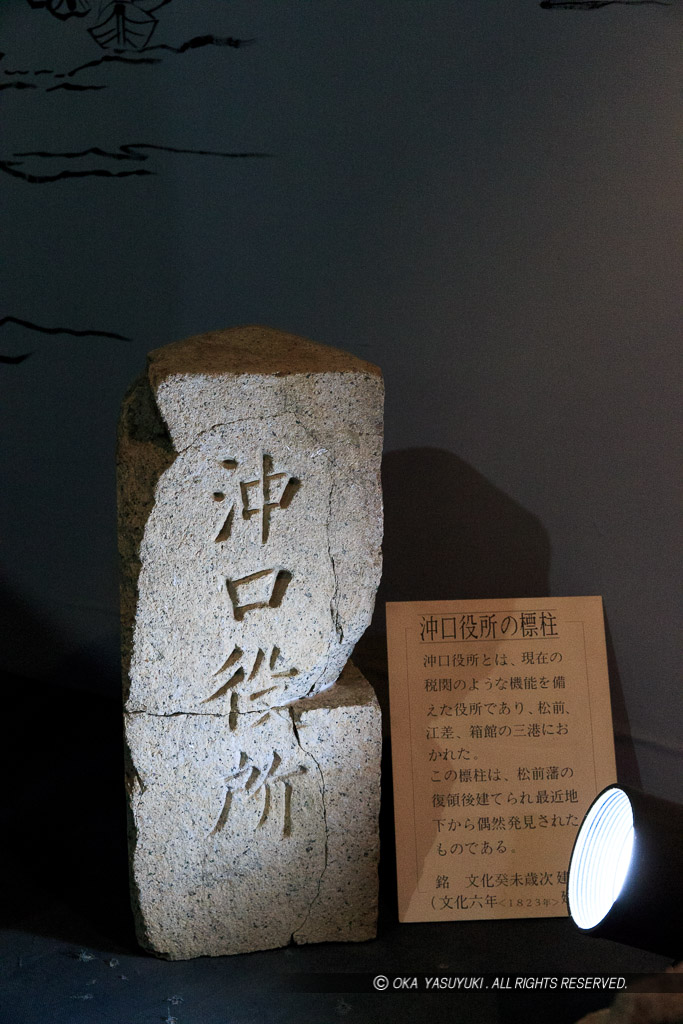 沖口役所
沖口役所の標柱
沖口役所とは、現在の
税関のような機能を備
えた役所であり、松前、
江差、箱館の三港にお
かれた。
この標柱は、松前藩の
復領後建てられ最近地
下から偶然発見された
ものである。
銘 文化癸未歳次建
(文化六年<1823年>
© OKA YASUYUKI . ALL RIGHTS RESERVED.